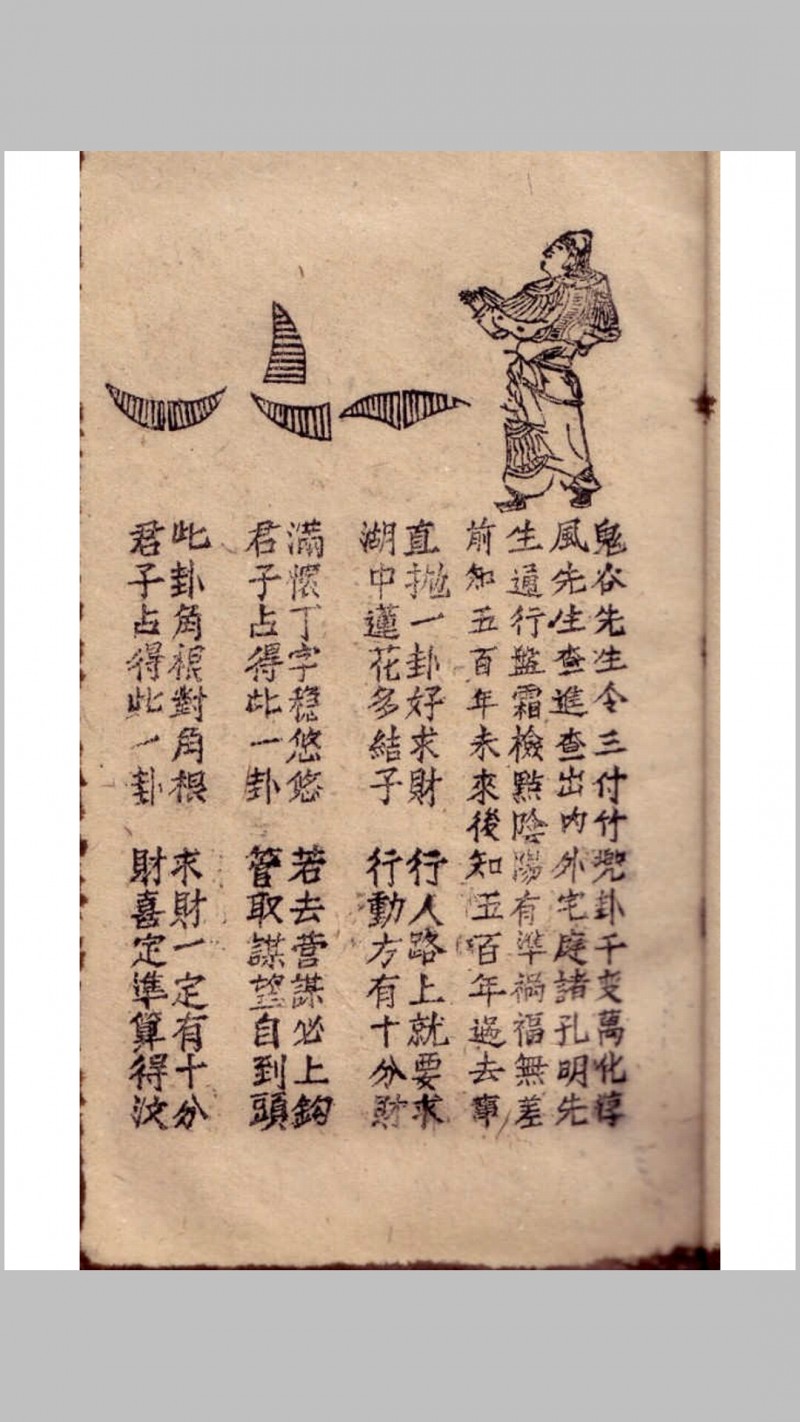 鬼谷先生令三付竹兜卦千变萬化淳
風先生查進查出内外宅庭諸孔明先
生通行盤霜檢點陰陽有準禍福無差
前知五百年未來後知五百年過去事
直抛一卦好求財 行人路上就要求
湖中蓮花多結子 行動方有十分財
滿懷丁字穩悠悠 若去营謀必上鈎
君子占得此一卦 管取謀望自到頭
此卦角根對角根 求財一定有十分
君子占得此一卦 財喜定準算得汶